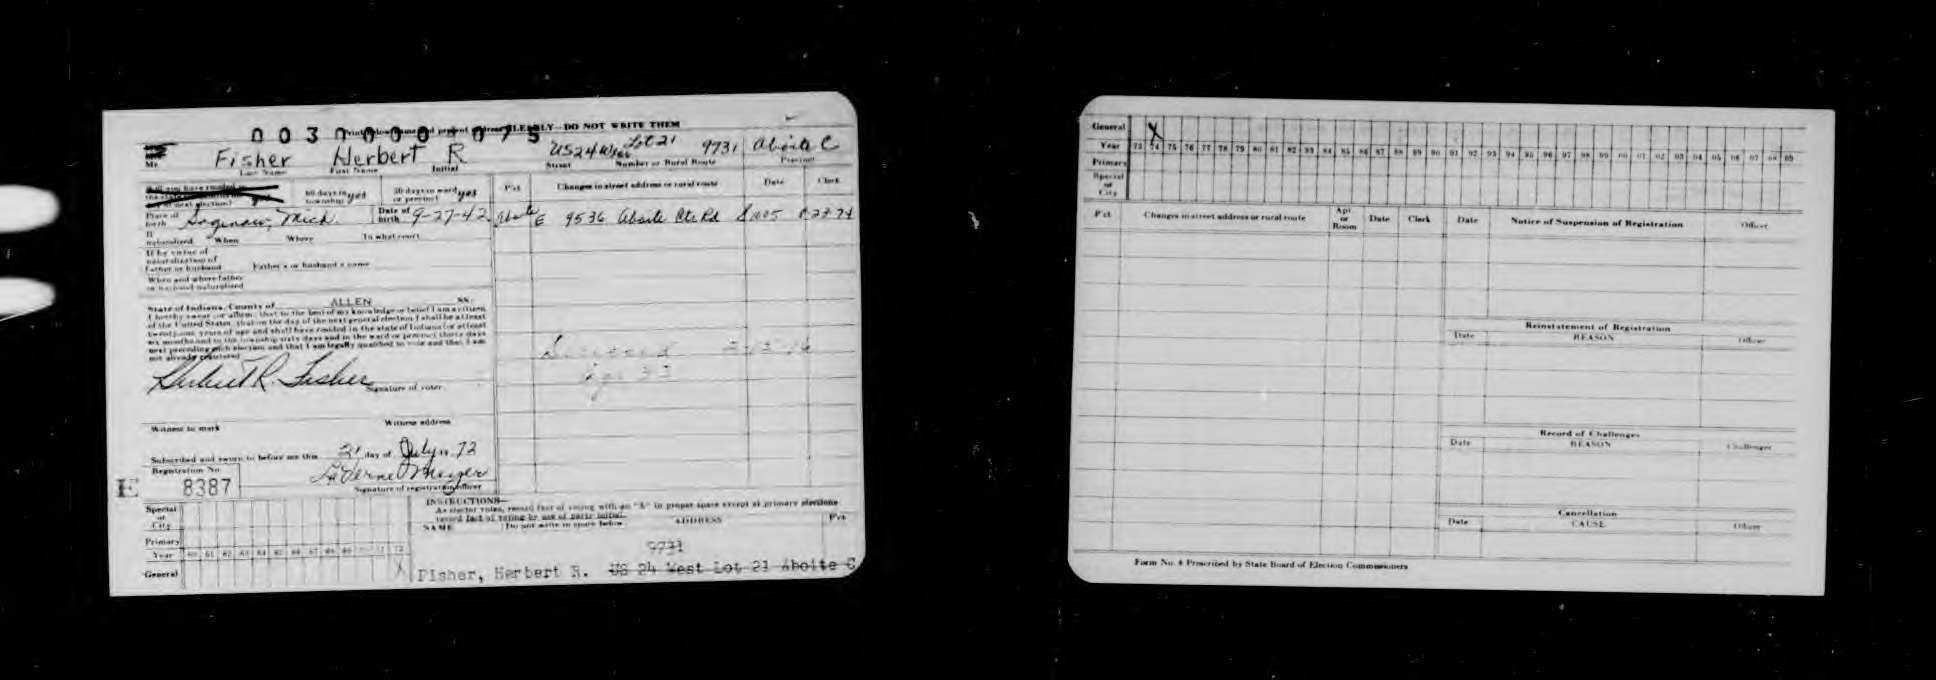 0030000 075
Print below name and present address CLEARLY—DO NOT WRITE THEM
Mr. Fisher Herbert R US 24 West Lot 21 9731 Aboite C
Last Name First Name Initial Street Number or Rural Route Precinct
Will you have resided in the state next election? yes 60 days in township yes 30 days in ward or precinct yes
Pct Changes in street address or rural route Date Clerk
Place of birth Saginaw, Mich. Date of birth 9-27-42
Aboite E 9536 Aboite Ctr Rd
If naturalized When Where In what court
If by virtue of naturalization of Father or husband Father's or husband's name
When and where father or husband naturalized
State of Indiana, County of ALLEN ss:
I hereby swear (or affirm) that to the best of my knowledge or belief I am a citizen
of the United States, that on the day of the next general election I shall be at least
twenty-one years of age and shall have resided in the state of Indiana for at least
six months and in the township sixty days and in the ward or precinct thirty days
next preceding such election and that I am legally qualified to vote and that I am
not already registered
Herbert R. Fisher
Signature of voter
Witness to mark Witness address
Subscribed and sworn to before me this 21 day of July 19 72
Registration No.
LaVerne
Signature of registration officer
E 8387
INSTRUCTIONS—
As elector votes, record fact of voting with an "X" in proper space except at primary elections
record fact of voting by use of party initial.
NAME (Do not write in space below) ADDRESS Pct
Special or City
Primary
Year 60 61 62 63 64 65 66 67 68 69 70 71 72
General X
9731
Fisher, Herbert R. US 24 West Lot 21 Aboite C
General X
Year 73 74 75 76 77 78 79 80 81 82 83 84 85 86 87 88 89 90 91 92 93 94 95 96 97 98 99 00 01 02 03 04 05 06 07 08 09
Primary
Special or City
Pct Changes in street address or rural route Apt. or Room Date Clerk Date Notice of Suspension of Registration Officer
Reinstatement of Registration
Date REASON Officer
Record of Challenges
Date REASON Challenger
Cancellation
Date CAUSE Officer
Form No. 4 Prescribed by State Board of Election Commissioners